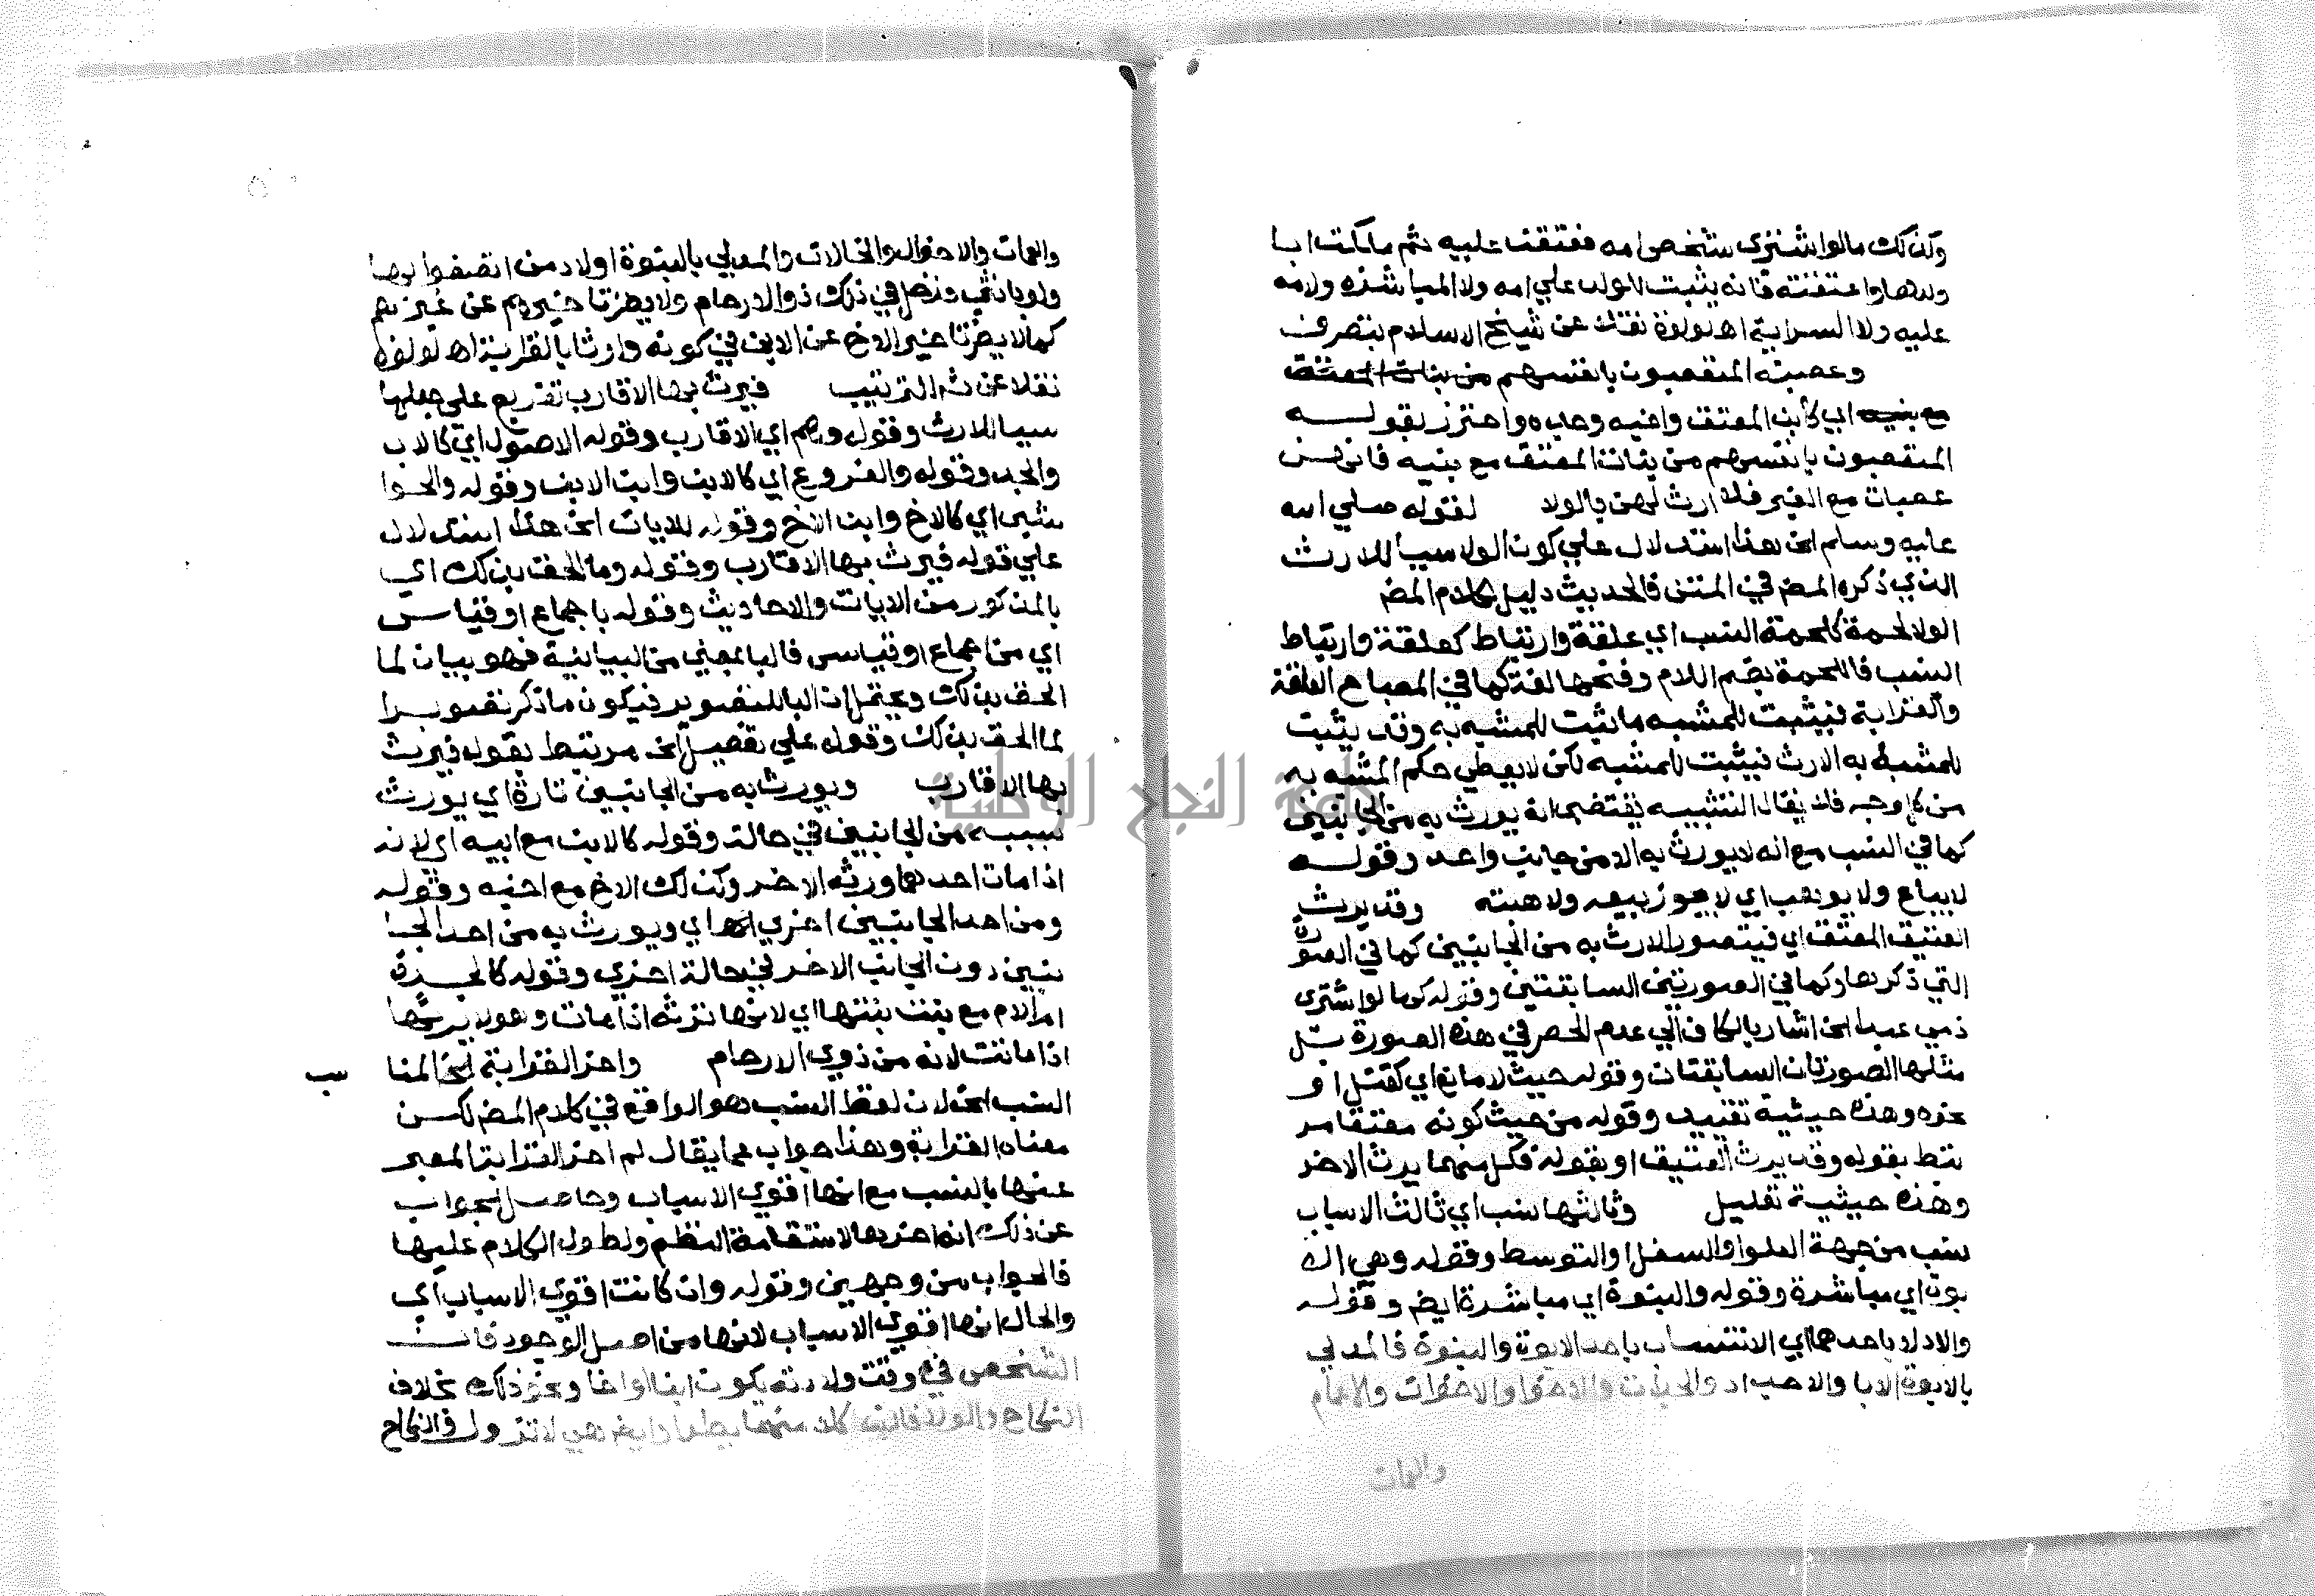 وكذلك ما لوا شترى شخص امه فعتقت عليه ثم ملكت ابا
ولدها واعتقته فانه يثبت للولد علي امه ولا المباشرة ولامه
عليه ولا السراية اه لولوة نقلا عن شيخ الاسلام بتصرف
وعصبته المتعصبون بانفسهم من بنات المعتق
مع بنيه اي كابن المعتق واخيه وجده واحترز بقوله
المتعصبون بانفسهم من بنات المعتق مع بنيه فانهن
عصبات مع الغير فلا ارث لهن بالولا لقوله صلي الله
عليه وسلم الخ هذا استدلال علي كون الولا سببا للارث
الذي ذكره المص في المتن فالحديث دليل لكلام المص
الولا لحمة كلحمة النسب اي علقة وارتباط كعلقة وارتباط
النسب فاللحمة بضم اللام وفتحها لغة كما في المصباح العلقة
والقرابة فيثبت للمشبه ما يثبت للمشبه به وقد يثبت
للمشبه به الارث فيثبت للمشبه لكن لا يعطي حكم المشبه به
من كل وجه فلا يقال التشبيه يقتضي انه يورث به من الجانبين
كما في النسب مع انه لا يورث به الا من جانب واحد وقوله
لا يباع ولا يوهب اي لا يجوز بيعه ولا هبته وقد يرث
العتيق المعتق اي فيتصور الارث به من الجانبين كما في الصورة
التي ذكرها وكما في الصورتين السابقتين وقوله كما لوا شترى
ذمي عبدا الخ اشار بالكاف الي عدم الحصر في هذه الصورة بل
مثلها الصورتان السابقتان وقوله حيث لا مانع اي كقتل او
نحوه وهذه حيثية تقييد وقوله من حيث كونه معتقا مر
تبط بقوله وقد يرث العتيق او بقوله فكل منهما يرث الاخر
وهذه حيثية تعليل وثالثها نسب اي ثالث الاسباب
نسب من جهة العلو او السفل او التوسط وقوله وهي الا
بوة اي مباشرة وقوله والبنوة اي مباشرة ايض وقوله
والادلا باحدهما اي الانتساب باحد الابوة والبنوة فالمدلي
بالابوة الابا والاجداد والجدات والاخوا والاخوات والاعمام
والعمات
والعمات والاخوال والخالات والمدلي بالبنوة اولاد من اتصفوا بها
ولو بانثي ودخل في ذلك ذوو الارحام ولا يضرنا خيرهم عن غيرهم
كما لا يضرنا خير الاخ عن الابن في كونه وارثا بالقرابة اه لولوة
نقلا عن ش الترتيب فيرث بها الاقارب تفريع علي جعلها
سببا للارث وقوله وهم اي الاقارب وقوله الاصول اي كالاب
والجد وقوله والفروع اي كالابن وابن الابن وقوله والحوا
شي اي كالاخ وابن الاخ وقوله للايات الخ هذا استدلال
علي قوله فيرث بها الاقارب وقوله وما الحق بذلك اي
بالمذكور من الايات والاحاديث وقوله باجماع او قياس
اي من اجماع او قياس فالبا بمعني من البيانية فهو بيان لما
الحق بذلك ويحتمل ان البا للتصوير فيكون ما ذكر تصويرا
لما الحق بذلك وقوله علي تفصيل الخ مرتبط بقوله فيرث
بها الاقارب ويورث به من الجانبين تارة اي يورث
بسببه من الجانبين في حالة وقوله كالابن مع ابيه اي لانه
اذا مات احدهما ورثه الاخر وكذلك الاخ مع اخيه وقوله
ومن احد الجانبين اخري اي ويورث به من احد الجا
نبين دون الجانب الاخر في حالة اخري وقوله كالجدة
ام الام مع بنت بنتها اي لانها ترثه اذا مات وهو لا يرثها
اذا ماتت لانه من ذوي الارحام واخر القرابة الخ المنا سب
النسب الخ لان لفظ النسب هو الواقع في كلام المص لكن
معناه القرابة وهذا جواب عما يقال لم اخر القرابة المعبر
عنها بالنسب مع انها اقوي الاسباب وحاصل الجواب
عن ذلك انه اخرها لاستقامة النظم ولطول الكلام عليها
فالجواب من وجهين وقوله وان كانت اقوي الاسباب اي
والحال انها اقوي الاسباب لانها من اصل الوجود فان
الشخص في وقت ولادته يكون ابنا او اخا ونحو ذلك بخلاف
النكاح والولا فان كلا منهما يطرا وايض هي لا تزول والنكاح